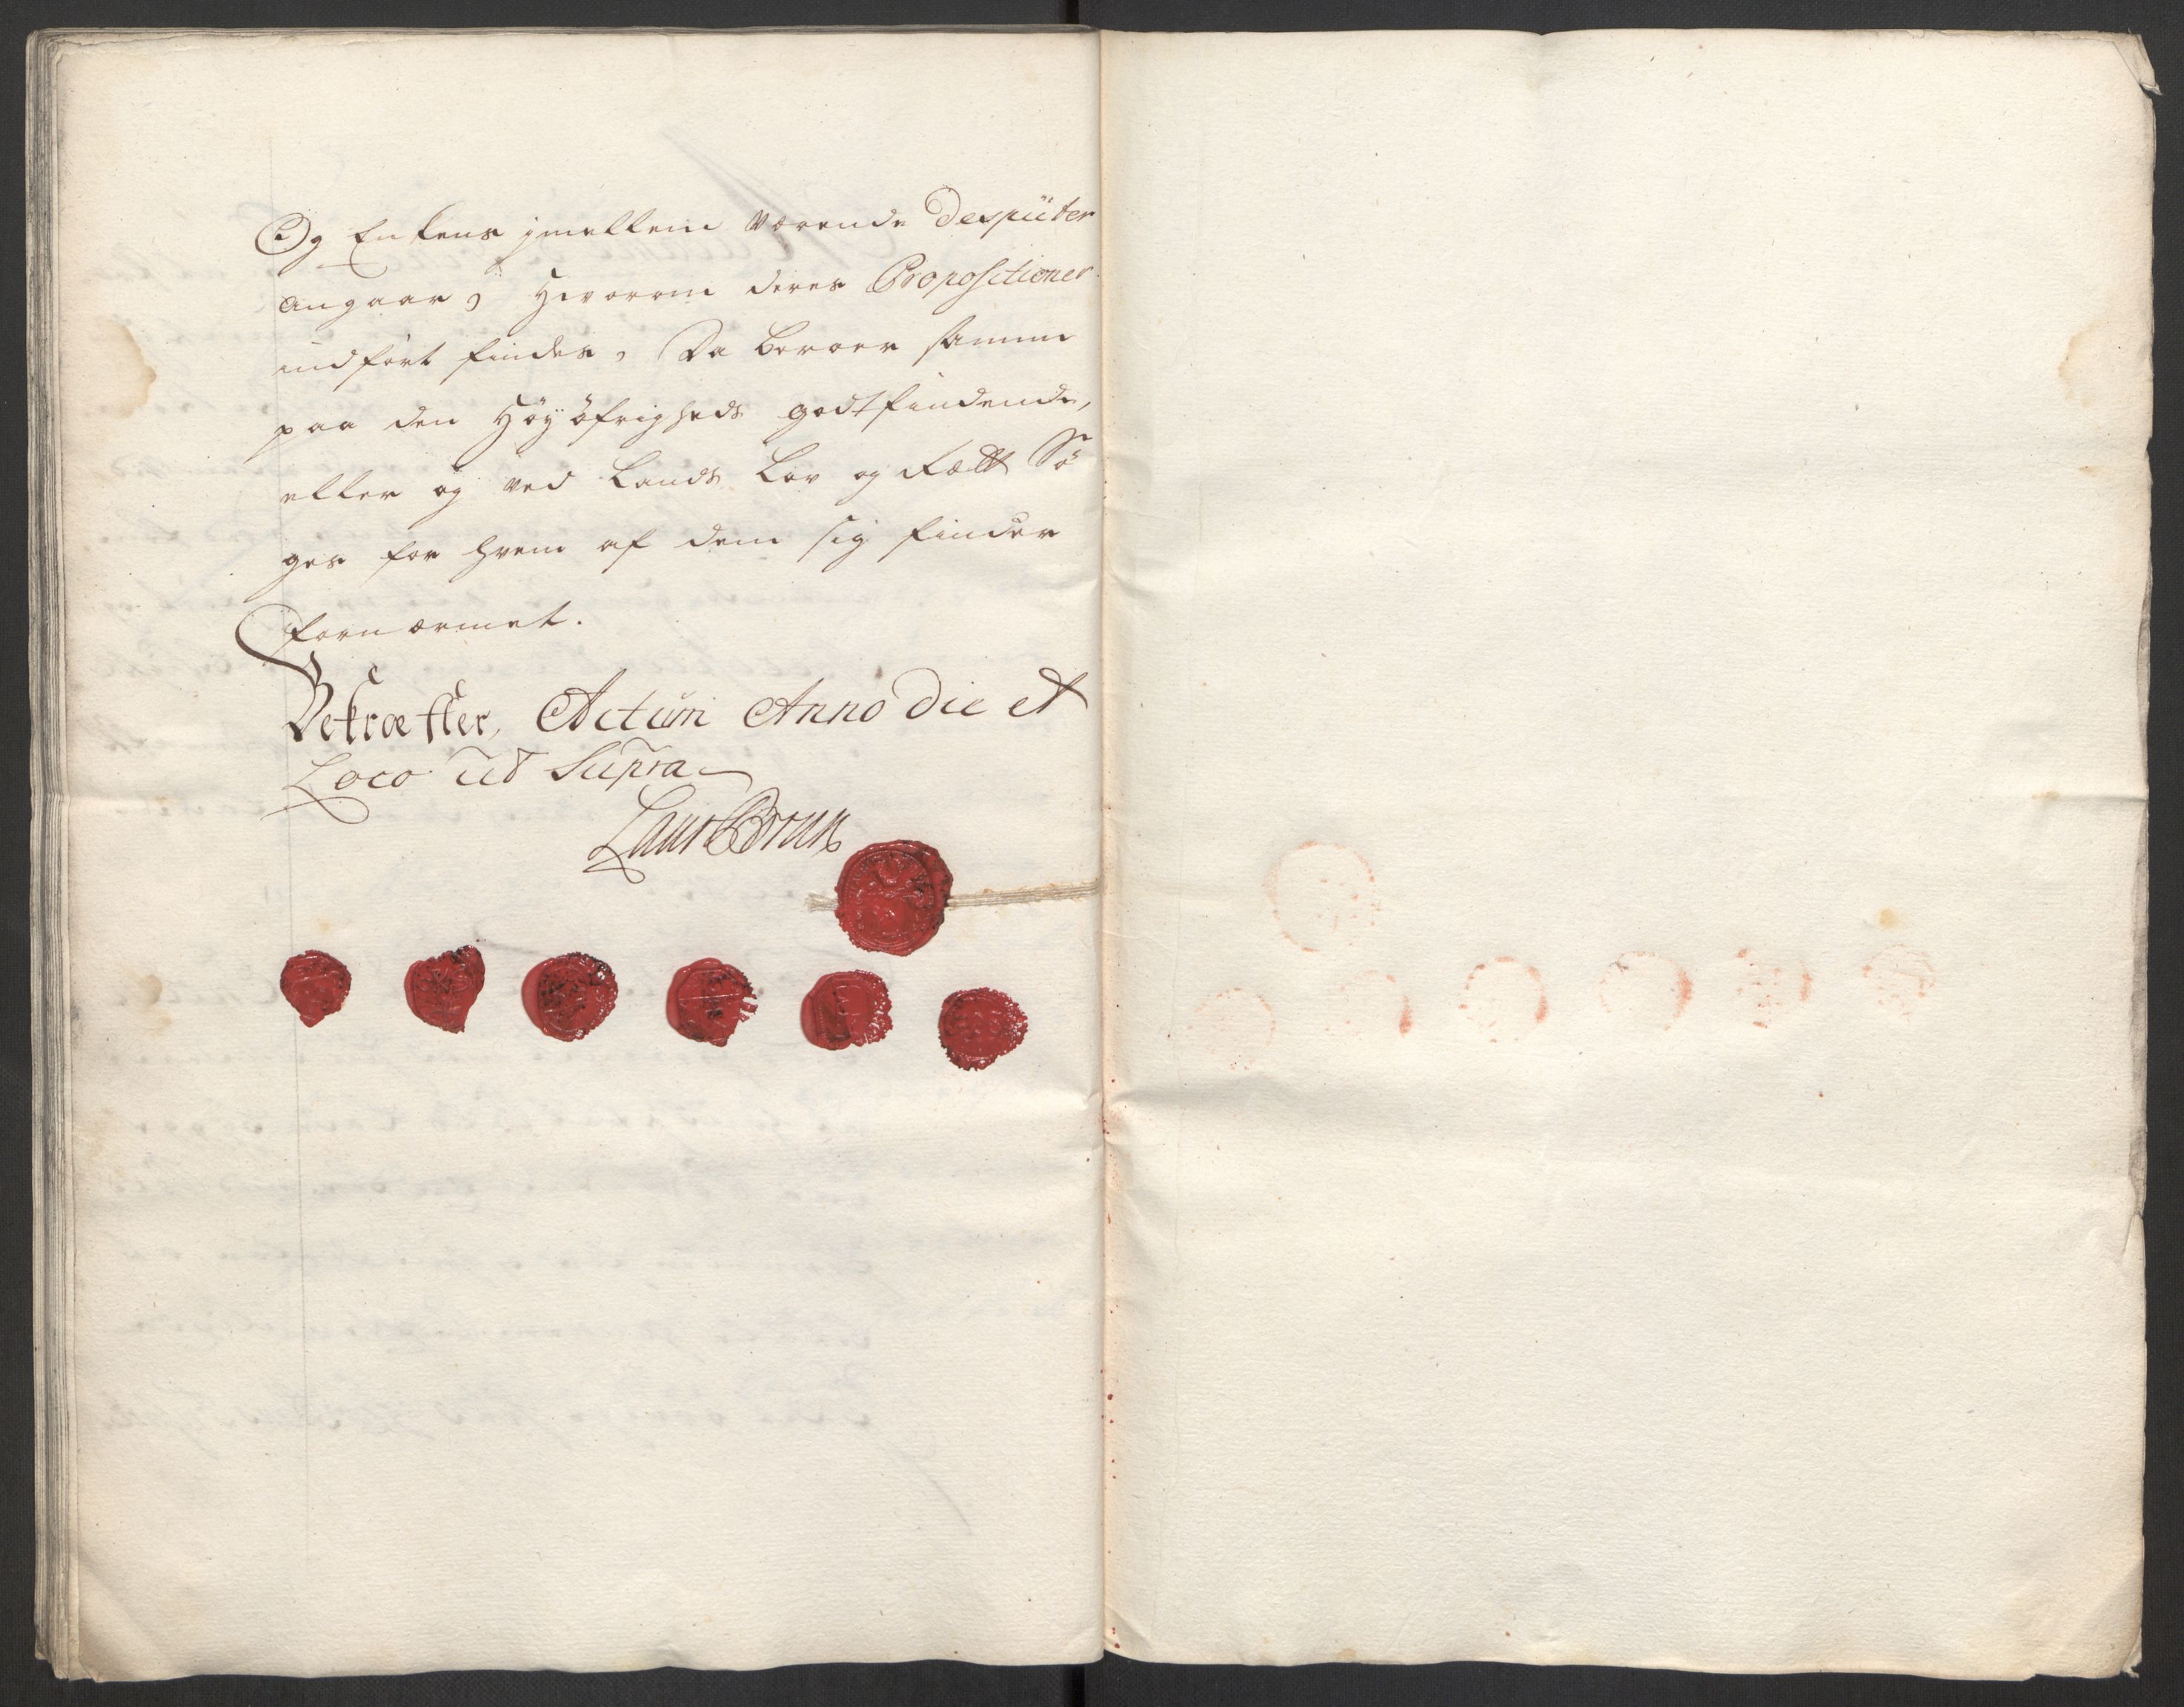 Og Enkens jmellem værende Despüter
angaar, Hvorom deres Propositioner
indført findes, Da beroer samme
paa den Høyøfrigheds godtfindende,
eller og ved Lands Lov og Rætt Sø
ges for hvem af dem sig finder
fornærmet.
Bekræfter, Actum Anno Die et
Loco ut Supra
Laur Brun